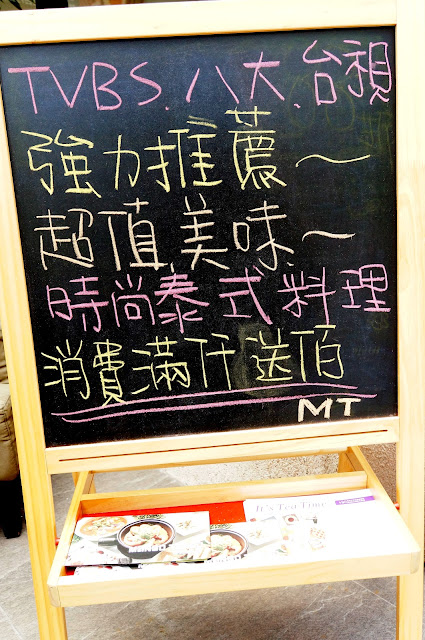 TVBS.八大.台視
強力推薦～
超值美味～
時尚泰式料理
消費滿仟送佰
MT
It's Tea Time